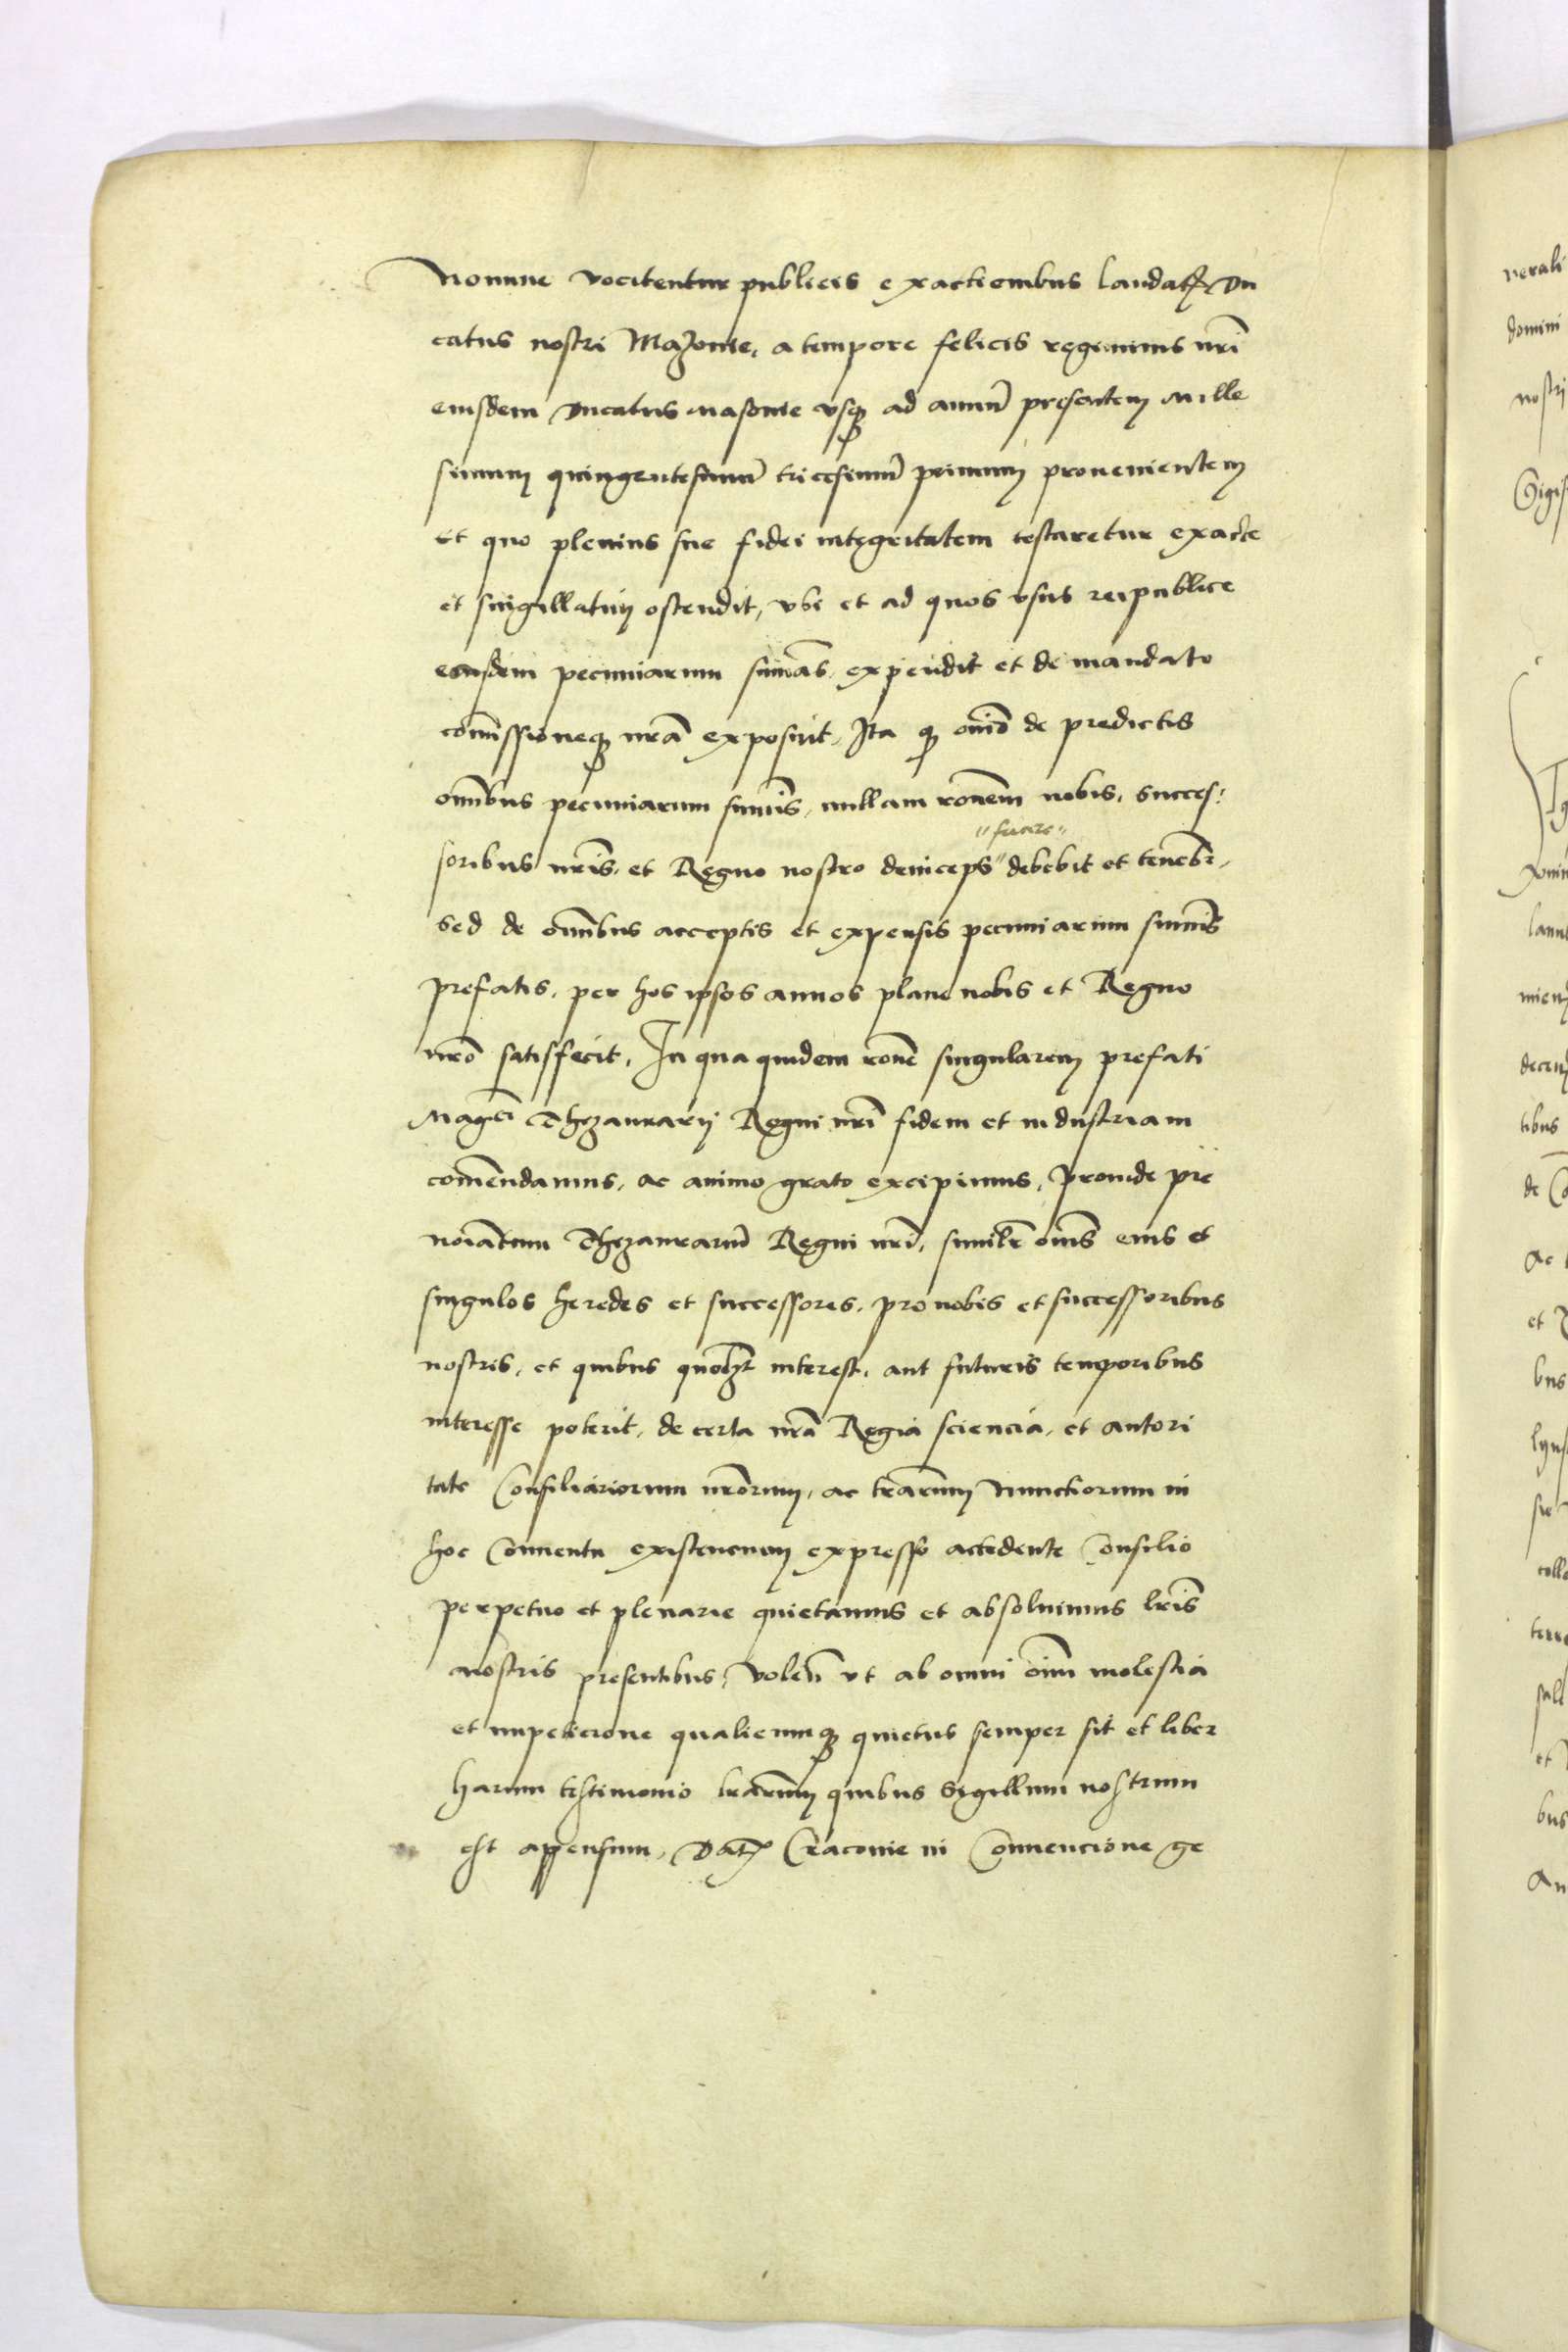 nomine vocitentur publicis exactionibus laudatꝭ Du
catus nostri Mazouie, a tempore felicis regiminis nrĩ
eiusdem Ducatus Masouie vsqꝫ ad annũ presentem Mille
simum quingentesimũ tricesimũ primum prouenientem
Et quo plenius sue fidei integritatem testaretur exacte
et singillatim ostendit, vbi et ad quos vsus reipublice
easdem pecuniarum sum̃as, expendit et de mandato
com̃issioneqꝫ nrã exposuit, Ita qꝫ om̃io de predictis
om̃ibus pecuniarum sum̃is, nullam rõnem nobis, succes:
soribus nrĩs, et Regno nostro deinceps debebit et tenebr̃,
sed de om̃ibus acceptis et expensis pecuniarum sum̃is
prefatis, per hos ipsos annos plane nobis et Regno
nrõ satisfecit, In qua quidem rõne singularem prefati
Magci Thezaurarij Regni nrĩ fidem et industriam
com̃endamus, ac animo grato excipimus, Proinde pre
noĩatum Thezaurariũ Regni nrĩ, similr̃ om̃s eius et
singulos heredes et successores, pro nobis et successoribus
nostris, et quibus quolꝫt interest, aut futuris temporibus
interesse poterit, de certa nrã Regia sciencia, et autori
tate Consiliariorum nrõrum, ac trãrum Nunctiorum in
hoc Conuentu existencium expresso accedente Consilio
perpetuo et plenarie quietamus et absoluimus lrĩs
nostris presentibus, Volen̄ vt ab omni oĩm molestia
et impeticione qualicunqꝫ quietus semper sit et liber
harum testimonio lrãrum quibus Sigillum nostrum
est appensum, Datꝫ Cracouie in Conuencione ge